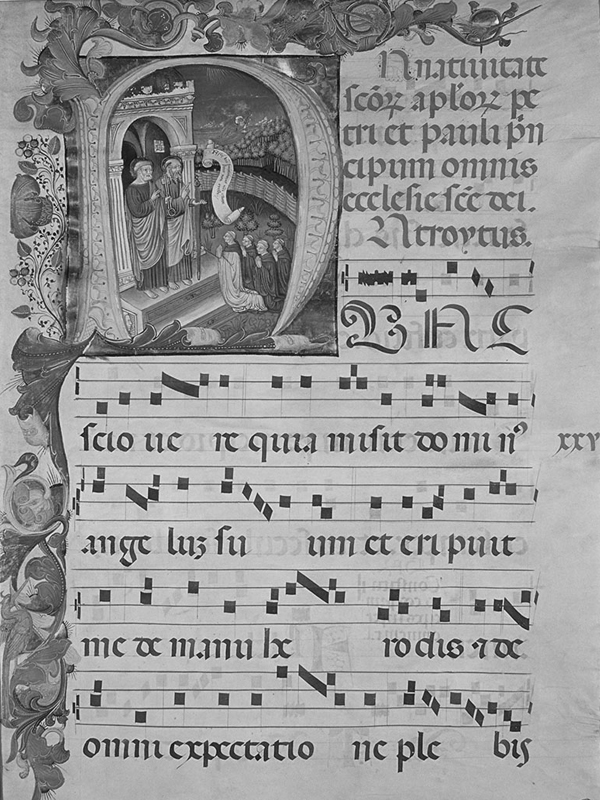 N natiuitate
scōꝝ aplōꝝ pe
tri et pauli pͥn
cipum omnis
ecclesie scē dei.
Ntroytus.
VNC
scio ue re quia misit do mi nꝰ xxv
ange luꝫ su um et eri puit
me de manu he ro dis ⁊ de
omni expectatio ne ple bis